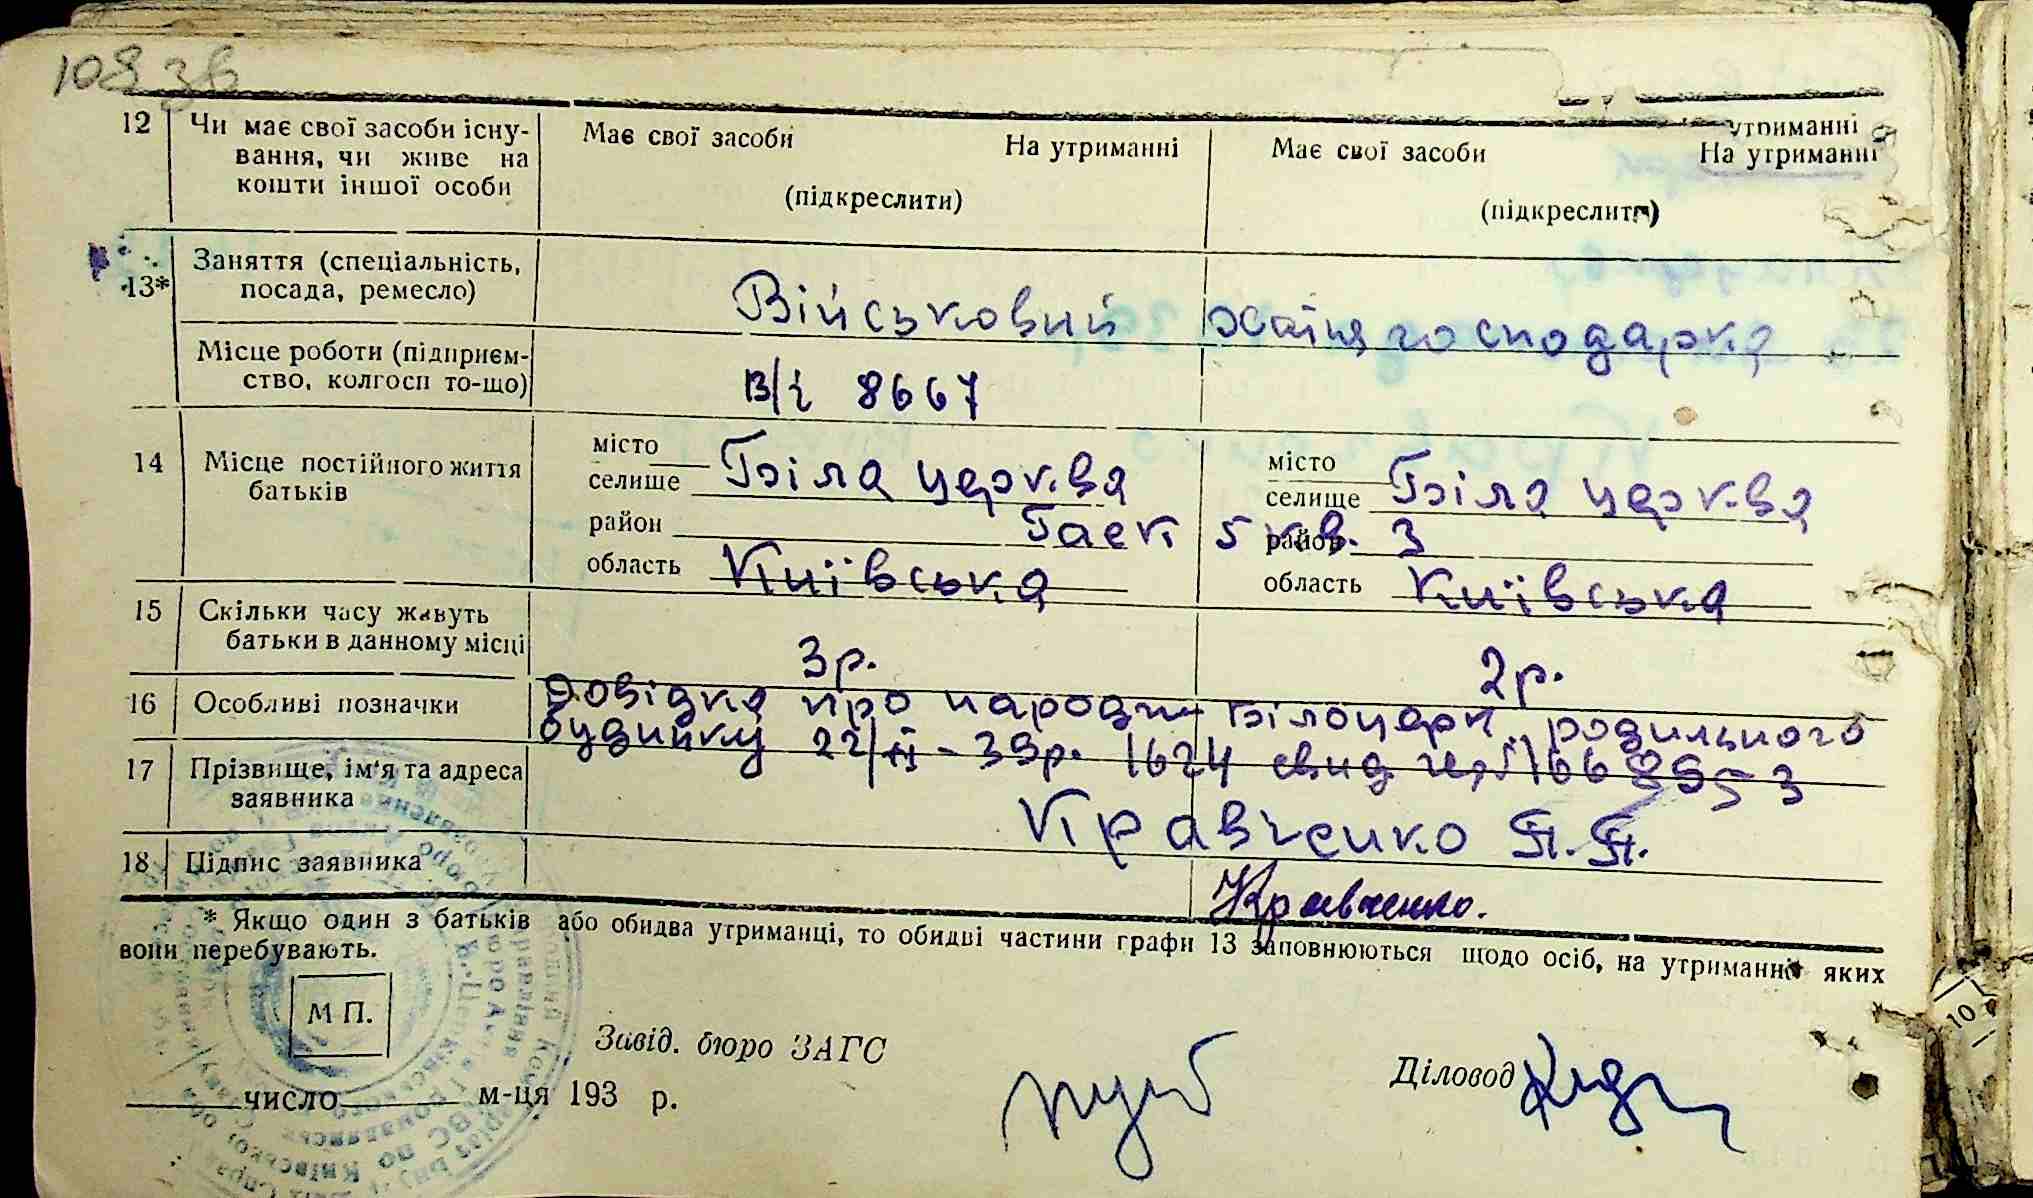 108 зв
12 Чи має свої засоби існу-
вання, чи живе на
кошти іншої особи
Має свої засоби На утриманні
(підкреслити)
утриманні
Має свої засоби На утриманні
(підкреслити)
13* Заняття (спеціальність,
посада, ремесло)
Військовий
хатня господарка
Місце роботи (підприєм-
ство, колгосп то-що)
в/ч 8667
14 Місце постійного життя
батьків
місто
селище Біла церква
район Гаєк 5 кв. 3
область Київська
місто
селище Біла церква
район
область Київська
15 Скільки часу живуть
батьки в данному місці
3р.
2р.
16 Особливі позначки
Довідка про народж Білоцерк. родильного
будинку 22/II-39р. 1624 свид
17 Прізвище, ім'я та адреса
заявника
Кравченко П.П.
18 Підпис заявника
Кравченко.
* Якщо один з батьків або обидва утриманці, то обидві частини графи 13 заповнюються щодо осіб, на утриманні яких
вони перебувають.
М П.
Завід. бюро ЗАГС
Діловод
число м-ця 193 р.
10